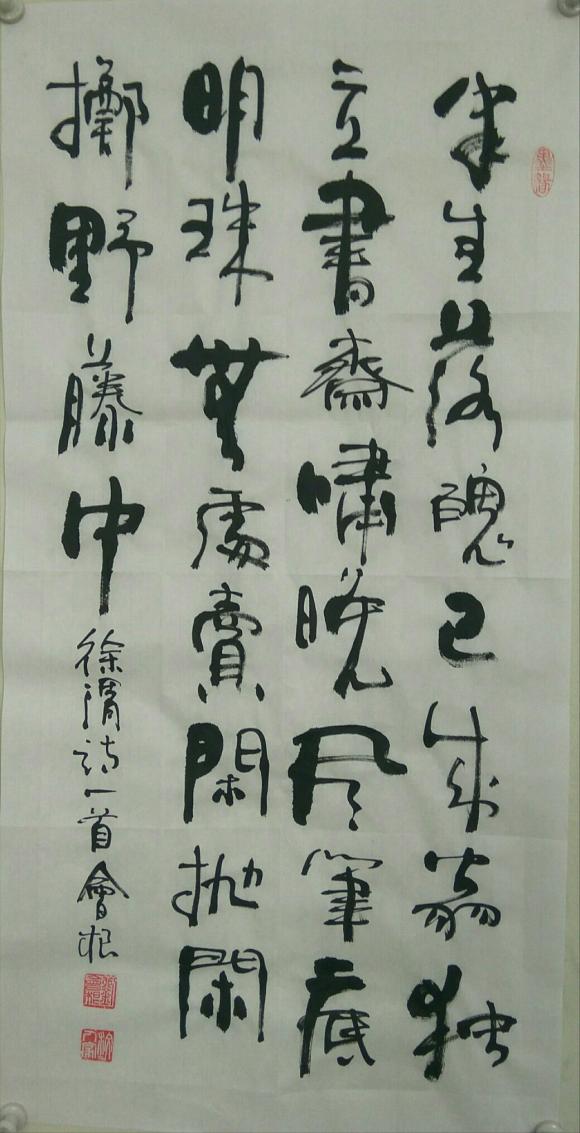 半生落魄已成翁独
立書齋嘯晚风筆底
明珠無處賣閑抛閑
擲野藤中
徐渭诗一首會根
墨缘